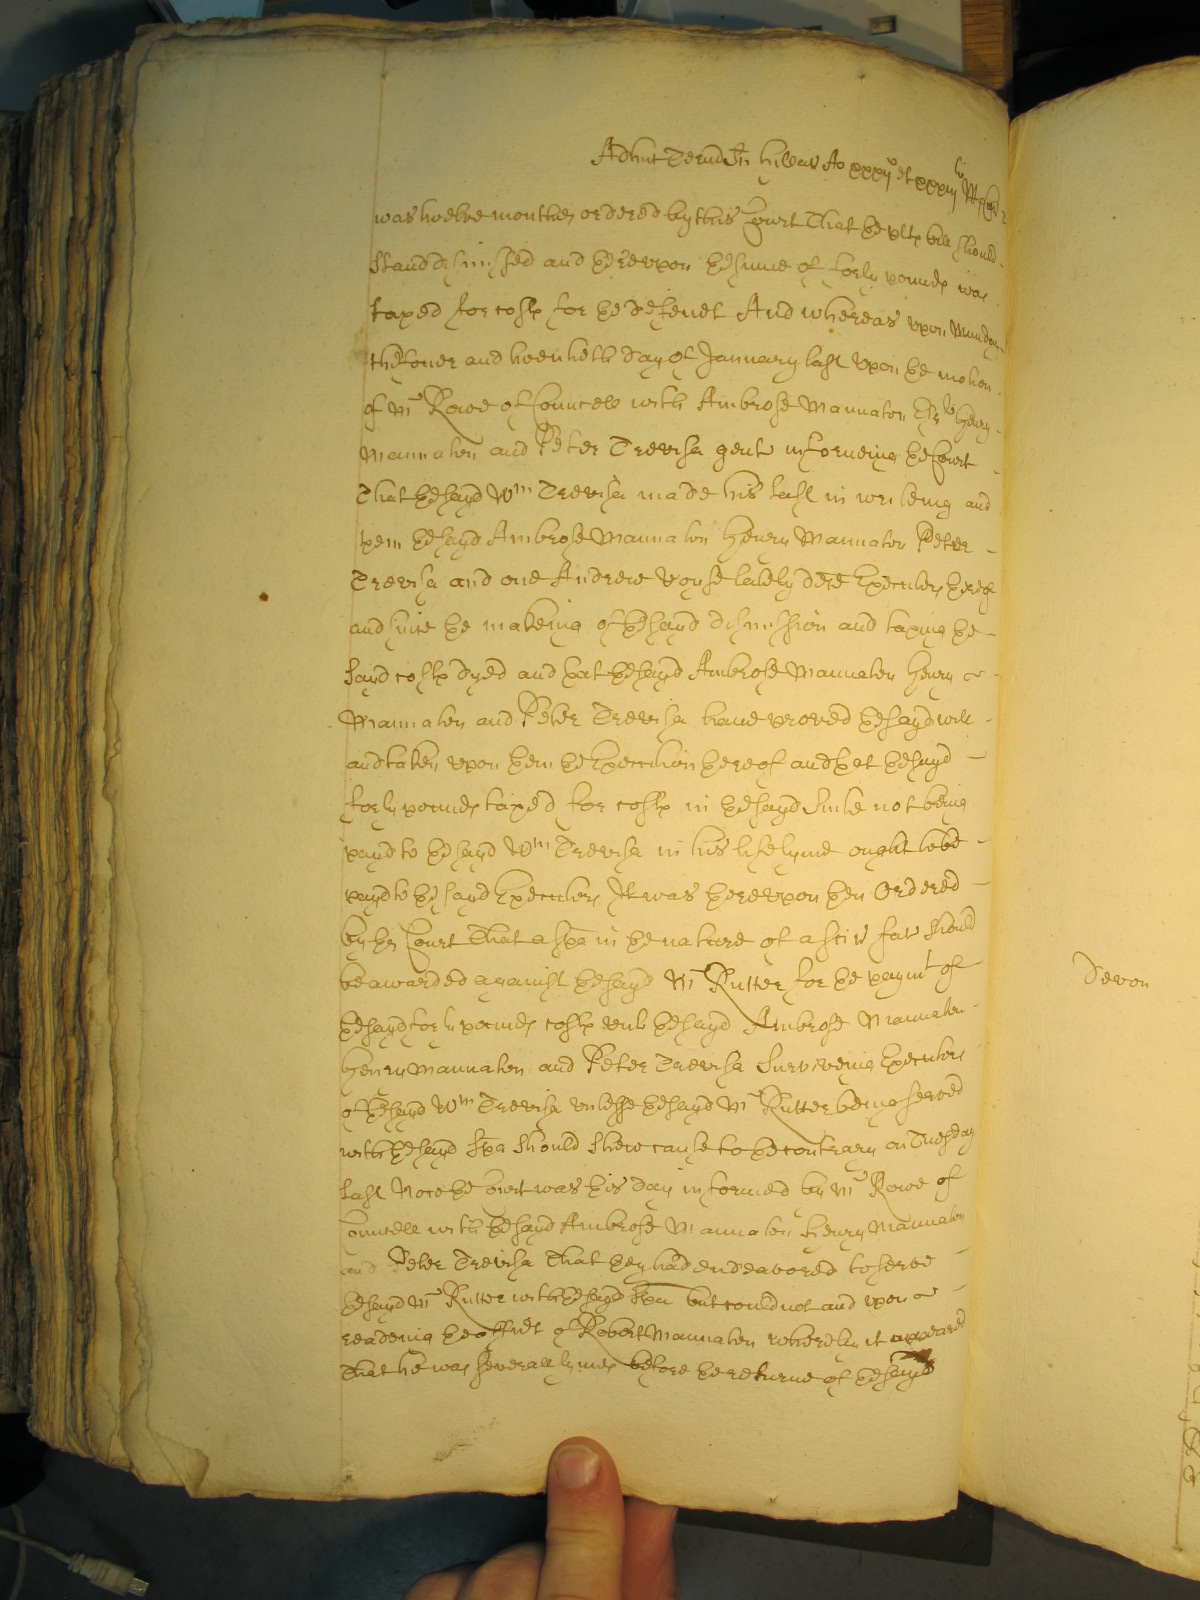 Adhuc Termino Sti Hillar Ao xxxijo et xxxiijo
was twelve monthes ordered by this Court That the plts bill should
stand dismissed and thereupon the summe of forty pounds was
taxed for costs for the defendt And whereas upon Munday
the fower and twentieth day of January last upon the motion
of Mr Rowe of Councell with Ambrose Mannaton Esqr Henry
Mannaton and Peter Trevisa gent informeing the Court
That the sayd Wm Trevisa made his last in writeing and
them the sayd Ambrose Mannaton Henry Mannaton Peter
Trevisa and one Andrew Voyse lately decd Executors thereof
and since the makeing of the sayd dismission and taxing the
sayd costs dyed and that the sayd Ambrose Mannaton Henry
Mannaton and Peter Trevisa have proved the sayd will
and taken upon them the Execution thereof and that the sayd
forty pounds taxed for costs in the sayd Suite not being
payd to the sayd Wm Trevisa in his lifetyme ought to be
payd to the sayd Executors It was thereupon then Ordered
by the Court That a spa in the nature of a scir fac should
be awarded against the sayd Mr Rutter for the paymt of
the sayd forty pounds costs unto the sayd Ambrose Mannaton
Henry Mannaton and Peter Trevisa Surviveing Executors
of the sayd Wm Trevisa unlesse the sayd Mr Rutter being served
with the sayd spa should shew cause to the contrary on Tuesday
last Now the Court was this day informed by Mr Rowe of
Councell with the sayd Ambrose Mannaton Henry Mannaton
and Peter Trevisa That they had endeavored to serve
the sayd Mr Rutter with the sayd spa but could not and upon
readeing the affidt of Robert Mannaton whereby it appeared
that he was severall tymes before the returne of the sayd
Devon